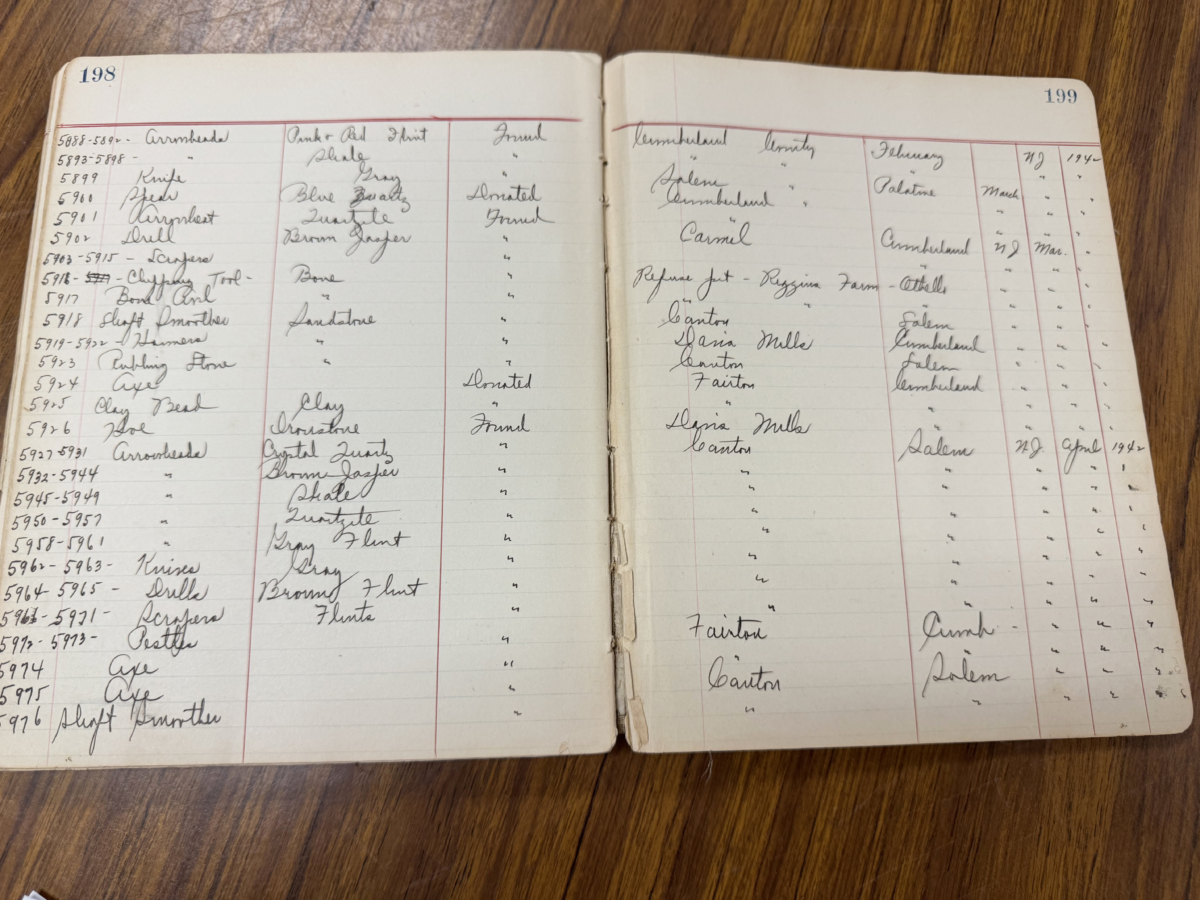 198
5888-5892- Arrowheads Pink & Red Flint Found
5893-5898- " Shale "
5899 Knife Gray "
5900 Spear Blue Quartz Donated
5901 Arrowheat Quartzite Found
5902 Drill Brown Jasper "
5903-5915- Scrapers "
5916- - Chipping Tool- Bone "
5917 Bone Awl " "
5918 Shaft Smoother Sandstone "
5919-5922- Hammers " "
5923 Rubbing Stone " "
5924 Axe Donated
5925 Clay Bead Clay "
5926 Hoe Ironstone Found
5927-5931 Arrowheads Crystal Quartz "
5932-5944 " Brown Jasper "
5945-5949 " Shale "
5950-5957 " Quartzite "
5958-5961 " Gray Flint "
5962-5963- Knives Gray "
5964-5965- Drills Brown Flint "
5966-5971- Scrapers Flints "
5972-5973- Pestles "
5974 Axe "
5975 Axe "
5976 Shaft Smoother "
199
Cumberland County February NJ 1942
" " " " "
Salem " Palatine March " "
Cumberland " " " "
" " " "
Carmel Cumberland NJ Mar. "
"
Refuse pit - Riggins Farm - Othello " " "
" " " " " "
Canton Salem " " "
Davis Mills Cumberland " " "
Canton Salem " " "
Fairton Cumberland " " "
" " " " "
Davis Mills " " " "
Canton Salem NJ April 1942
" " " " "
" " " " "
" " " " "
" " " " "
" " " " "
" " " " "
" " " " "
Fairton Cumb - " " "
" " " "
Canton Salem " " "
" " " " "